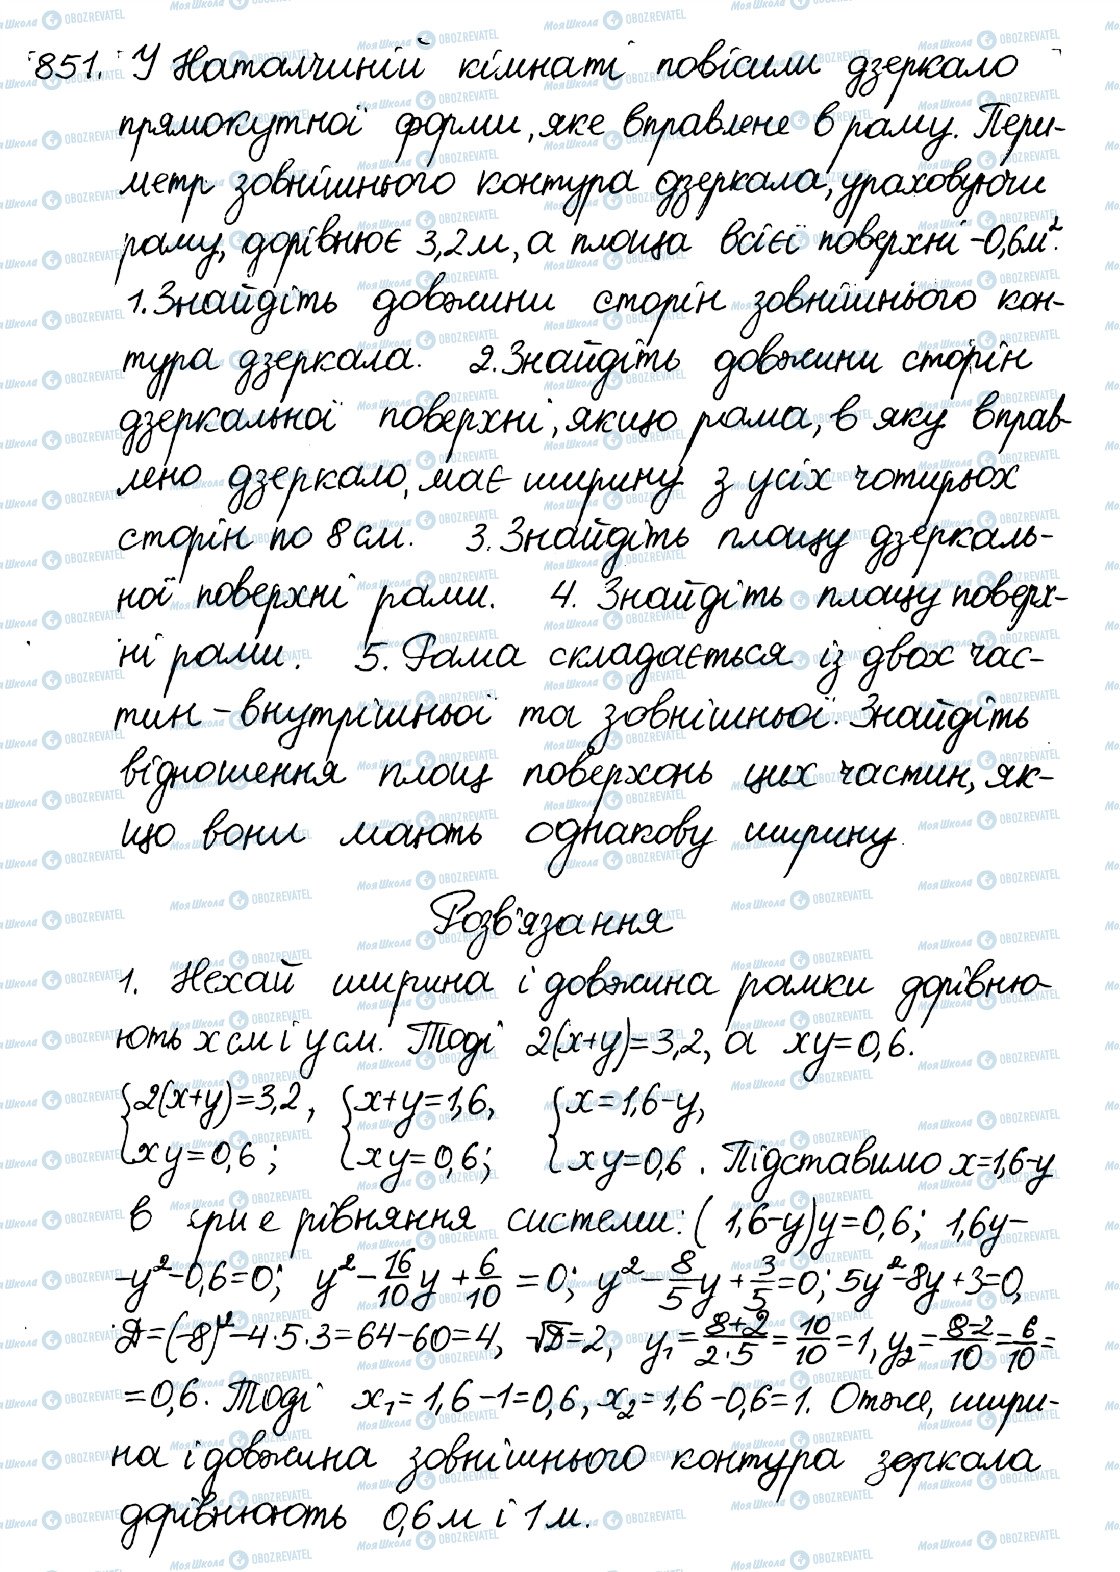 851. У Наталчиній кімнаті повісили дзеркало
прямокутної форми, яке вправлене в раму. Пери-
метр зовнішнього контура дзеркала, ураховуючи
раму, дорівнює 3,2 м, а площа всієї поверхні - 0,6 м².
1. Знайдіть довжини сторін зовнішнього кон-
тура дзеркала. 2. Знайдіть довжини сторін
дзеркальної поверхні, якщо рама, в яку вправ-
лено дзеркало, має ширину з усіх чотирьох
сторін по 8 см. 3. Знайдіть площу дзеркаль-
ної поверхні рами. 4. Знайдіть площу поверх-
ні рами. 5. Рама складається із двох час-
тин - внутрішньої та зовнішньої. Знайдіть
відношення площ поверхонь цих частин, як-
що вони мають однакову ширину.
Розв'язання
1. Нехай ширина і довжина рамки дорівню-
ють x см і y см. Тоді 2(x+y)=3,2, а xy=0,6.
{2(x+y)=3,2, {x+y=1,6, {x=1,6-y,
xy=0,6; xy=0,6; xy=0,6. Підставимо x=1,6-y
в рівняння системи: (1,6-y)y=0,6; 1,6y-
-y²-0,6=0; y²-16/10y+6/10=0; y²-8/5y+3/5=0; 5y²-8y+3=0,
D=(-8)²-4·5·3=64-60=4, √D=2, y₁=8+2/2·5=10/10=1, y₂=8-2/10=6/10=
=0,6. Тоді x₁=1,6-1=0,6, x₂=1,6-0,6=1. Отже, шири-
на і довжина зовнішнього контура зеркала
дорівнюють 0,6 м і 1 м.
Моя Школа OBOZREVATEL